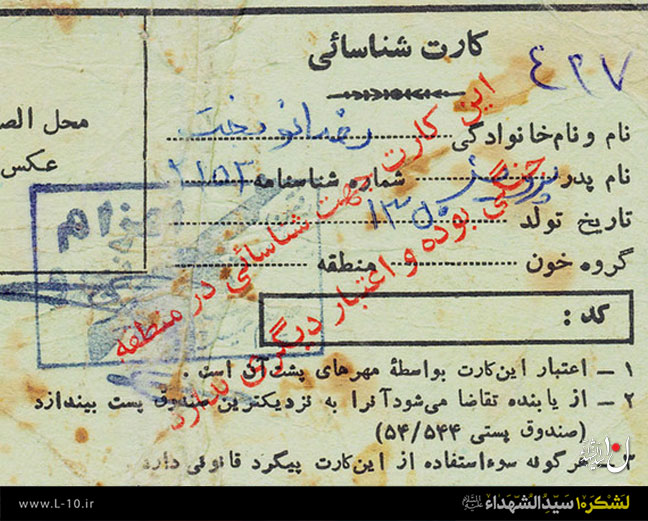 کارت شناسائی
۴۲۷
نام و نام خانوادگی
نام پدر پرویز شماره شناسنامه ۲۱۵۳
تاریخ تولد ۱۳۵۰
گروه خون منطقه
محل الص
عکس
اعزام
این کارت جهت شناسائی در منطقه
جنگی بوده و اعتبار دیگری ندارد
کد :
۱ – اعتبار این‌کارت بواسطهٔ مهرهای پشت‌آن است .
۲ – از یابنده تقاضا می‌شود آنرا به نزدیکترین صندوق پست بیندازد
(صندوق پستی ۵۴/۵۴۴)
۳ – هرگونه سوءاستفاده از این‌کارت پیگرد قانونی دارد
www.L-10.ir
لشکر۱۰ سیّدالشهداء